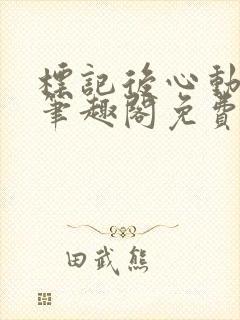 標記後心動
筆趣閣免費
田武熊